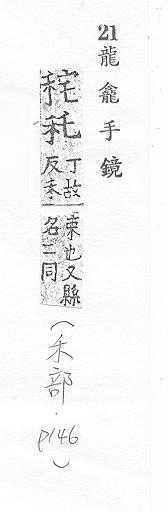 21龍龕手鏡
秅丁故反禾束也又縣名二同
(禾部.p146)